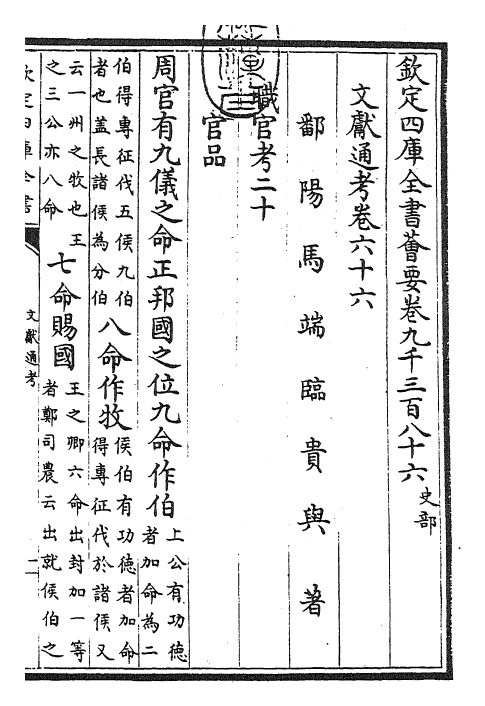 欽定四庫全書薈要卷九千三百八十六 史部
文獻通考卷六十六
鄱陽馬端臨貴與著
職官考二十
官品
周官有九儀之命正邦國之位九命作伯上公有功德者加命為二
伯得專征伐五侯九伯者也蓋長諸侯為分伯八命作牧侯伯有功德者加命得專征伐於諸侯又
云一州之牧也王之三公亦八命七命賜國王之卿六命出封加一等者鄭司農云出就侯伯之
欽定四庫全書
文獻通考